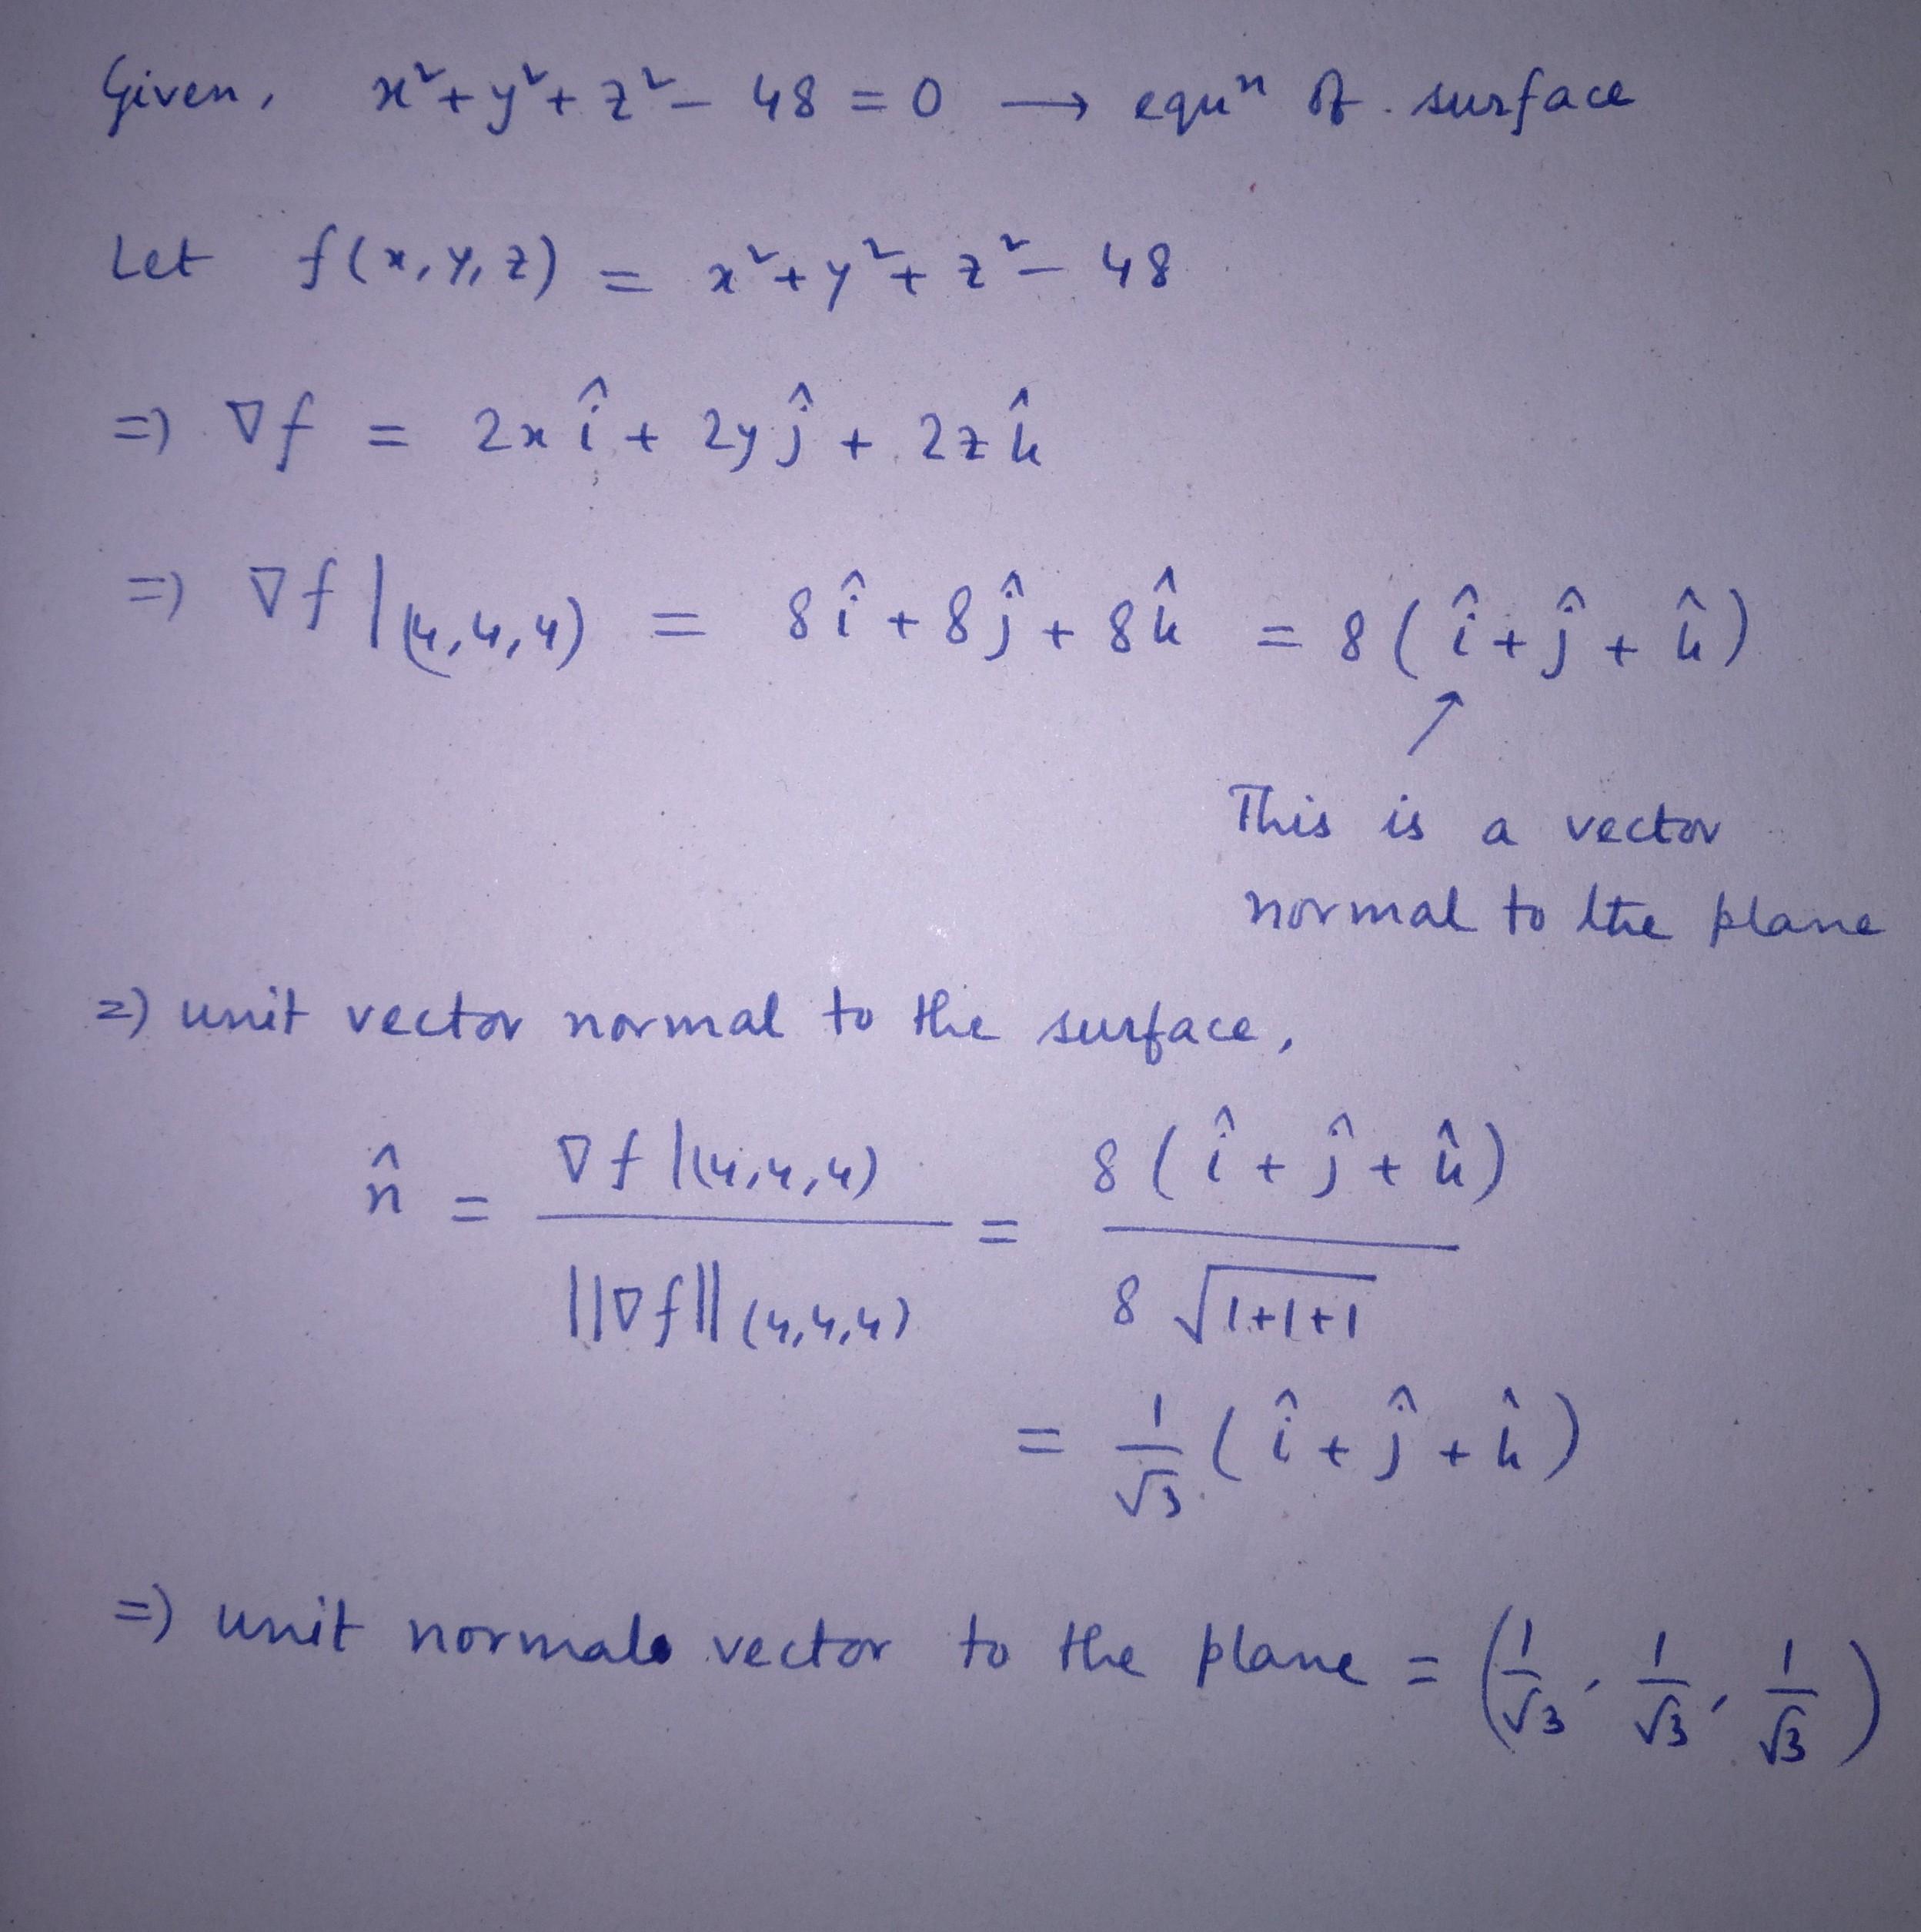 Given, x²+y²+z²- 48 = 0 → equⁿ of surface
Let f(x,y,z) = x²+y²+z²- 48
=> ∇f = 2x î + 2y ĵ + 2z k̂
=> ∇f |(4,4,4) = 8î + 8ĵ + 8k̂ = 8(î + ĵ + k̂)
↑
This is a vector
normal to the plane
=> unit vector normal to the surface,
n̂ = ∇f |(4,4,4) / ||∇f||(4,4,4) = 8(î + ĵ + k̂) / 8√1+1+1
= 1/√3 (î + ĵ + k̂)
=> unit normal vector to the plane = (1/√3, 1/√3, 1/√3)